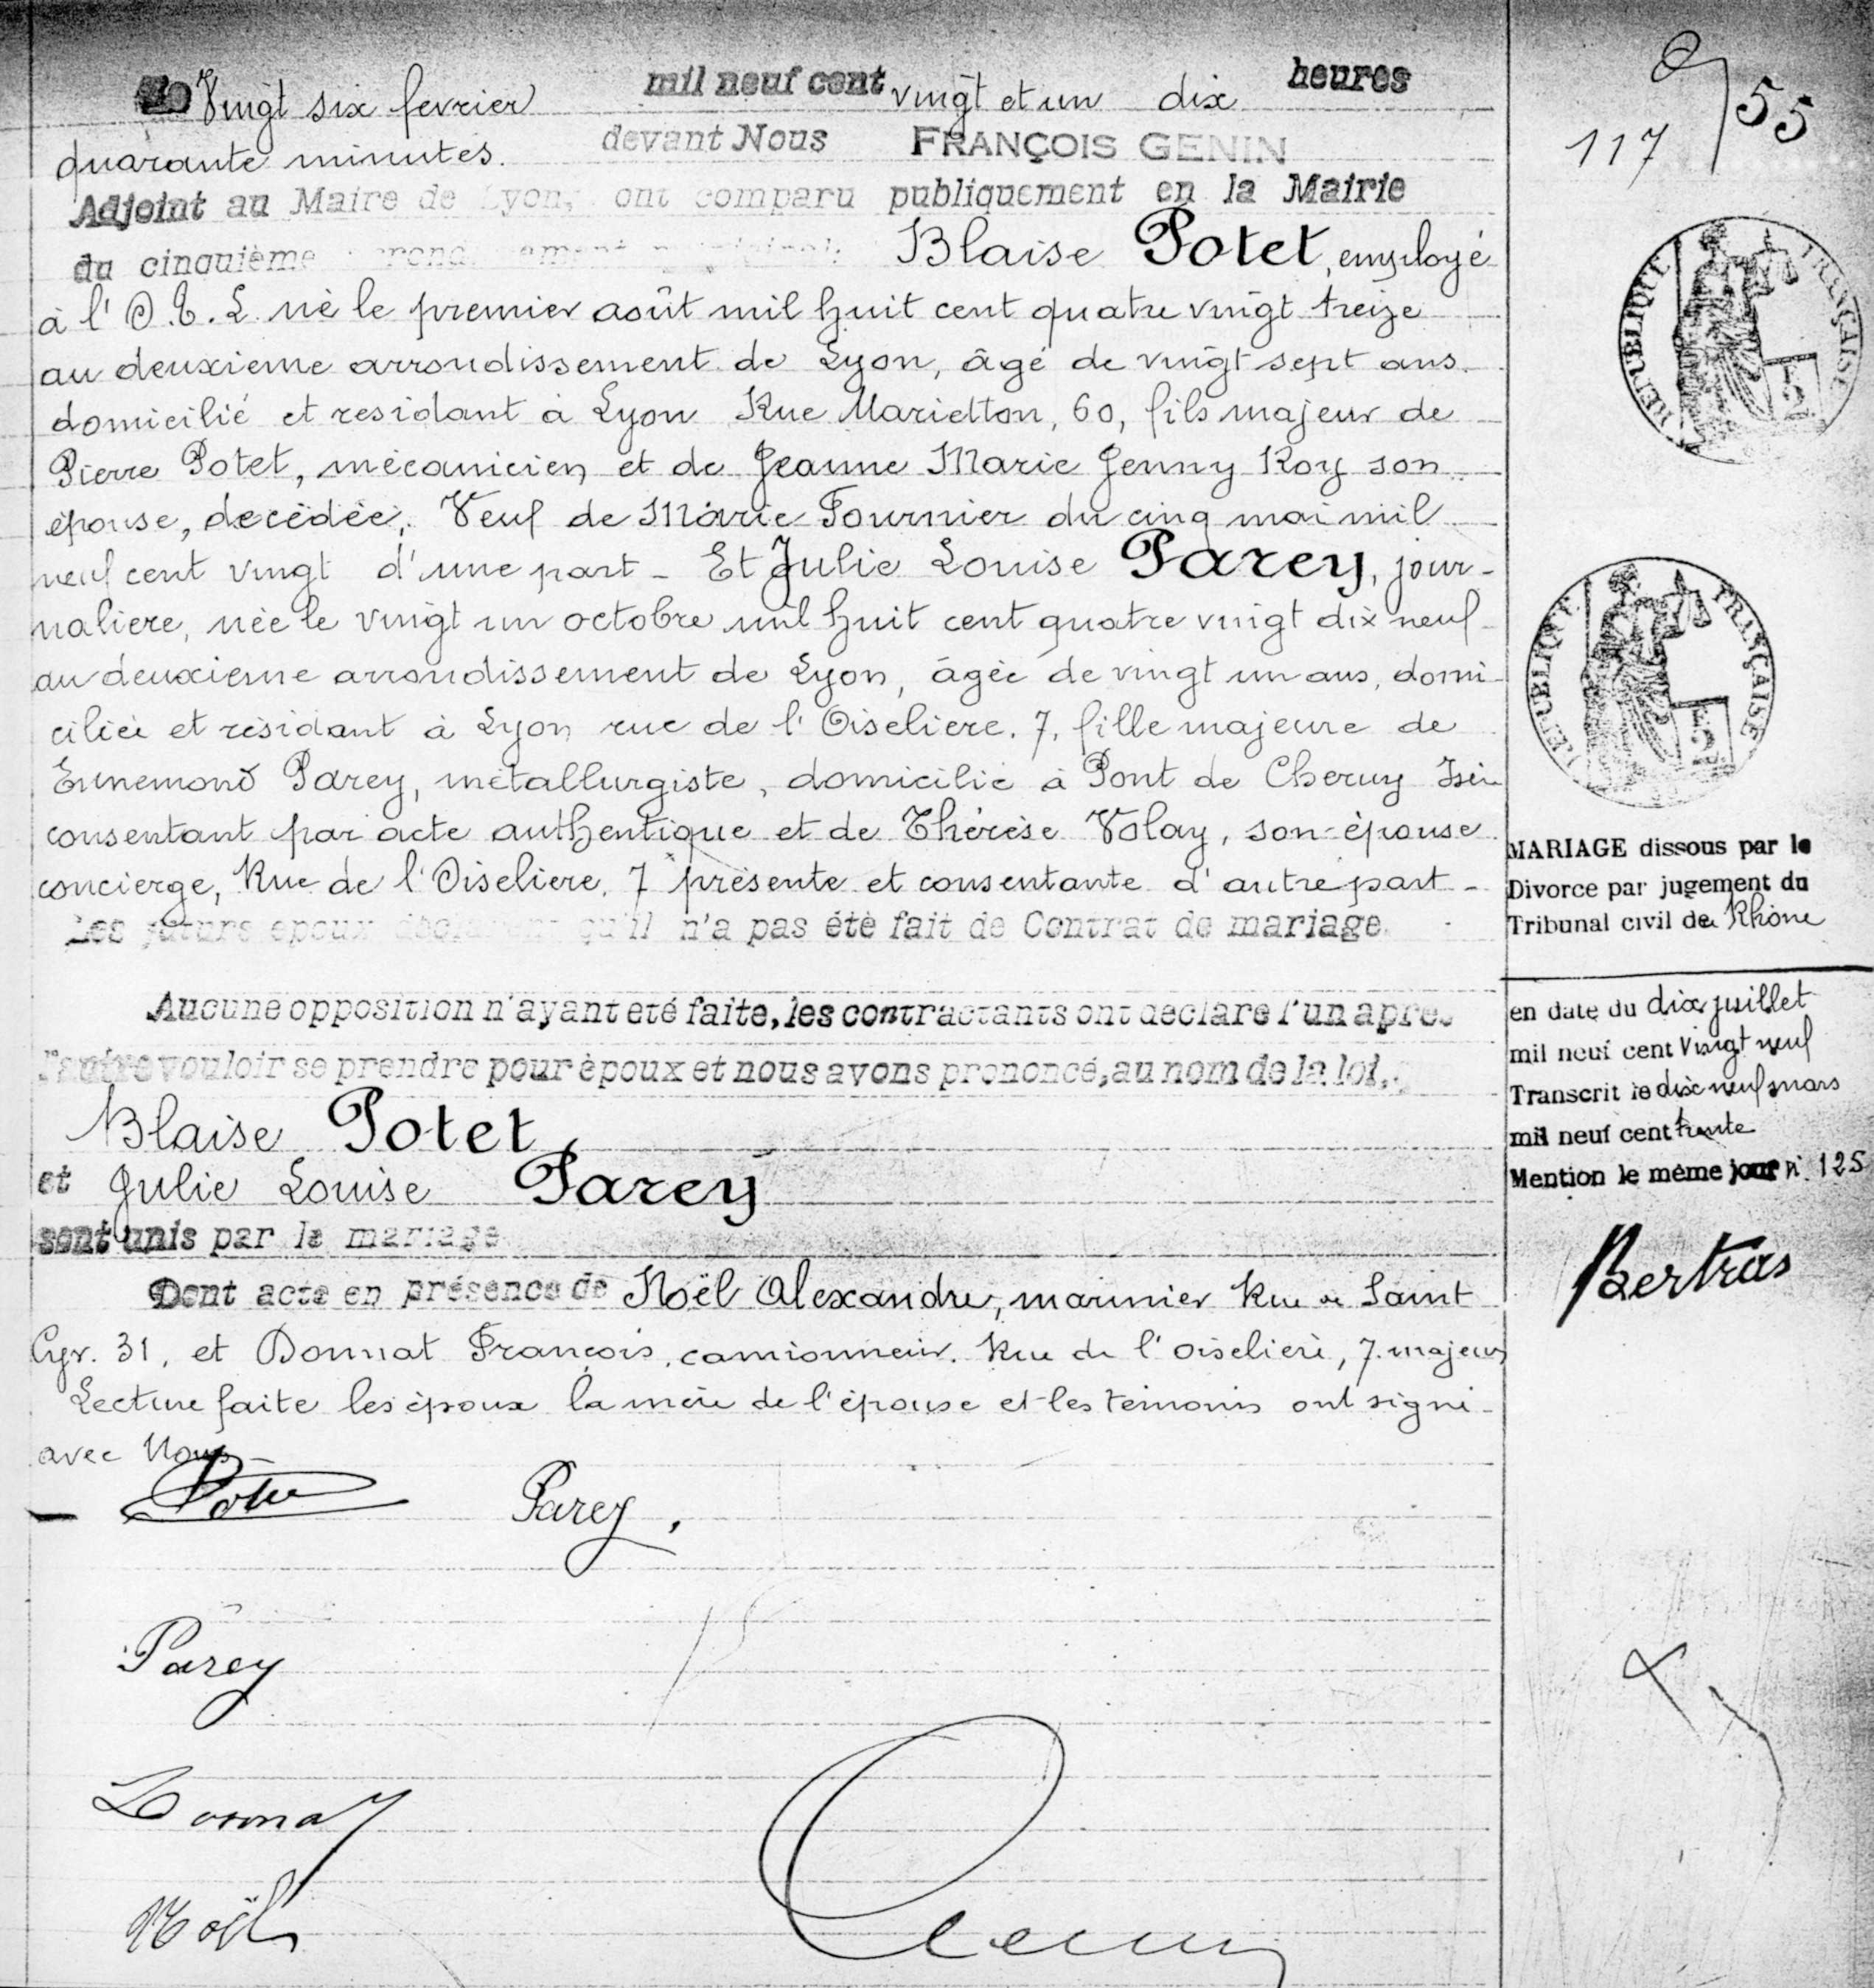 Le Vingt six fevrier mil neuf cent vingt et un dix heures
quarante minutes. devant Nous FRANÇOIS GENIN
Adjoint au Maire de Lyon, ont comparu publiquement en la Mairie
du cinquième Blaise Potet, employé
à l'O.T.L. né le premier août mil huit cent quatre vingt treize
au deuxieme arrondissement de Lyon, âgé de vingt sept ans.
domicilié et residant à Lyon Rue Marietton, 60, fils majeur de
Pierre Potet, mécanicien et de Jeanne Marie Jenny Roy son
épouse, decédée, Veuf de Marie Fournier du cinq mai mil
neuf cent vingt d'une part - Et Julie Louise Parey, jour-
naliere, née le vingt un octobre mil huit cent quatre vingt dix neuf
au deuxieme arrondissement de Lyon, âgée de vingt un ans, domi-
ciliée et résidant à Lyon rue de l'Oiseliere. 7, fille majeure de
Ennemond Parey, métallurgiste, domicilié à Pont de Cheruy Isère
consentant par acte authentique et de Thérèse Volay, son épouse
concierge, Rue de l'Oiseliere, 7 présente et consentante d'autre part -
Les futurs epoux déclarent qu'il n'a pas été fait de Contrat de mariage.
Aucune opposition n'ayant eté faite, les contractants ont déclaré l'un apres
l'autre vouloir se prendre pour époux et nous avons prononcé, au nom de la loi,
Blaise Potet,
et Julie Louise Parey
sont unis par le mariage
Dont acte en présence de Noël Alexandre, marinier Rue de Saint
Cyr. 31, et Donnat François, camionneur. Rue de l'oiselière, 7. majeurs
Lecture faite les époux la mère de l'épouse et les témoins ont signé
avec Nous -
Potet
Parey.
Parey
Donnat
Noël
Genin
117
55
RÉPUBLIQUE FRANÇAISE
RÉPUBLIQUE FRANÇAISE
MARIAGE dissous par le
Divorce par jugement du
Tribunal civil de Rhône
en date du dix juillet
mil neuf cent Vingt neuf
Transcrit le dix neuf mars
mil neuf cent trente
Mention le même jour N. 125
Bertras